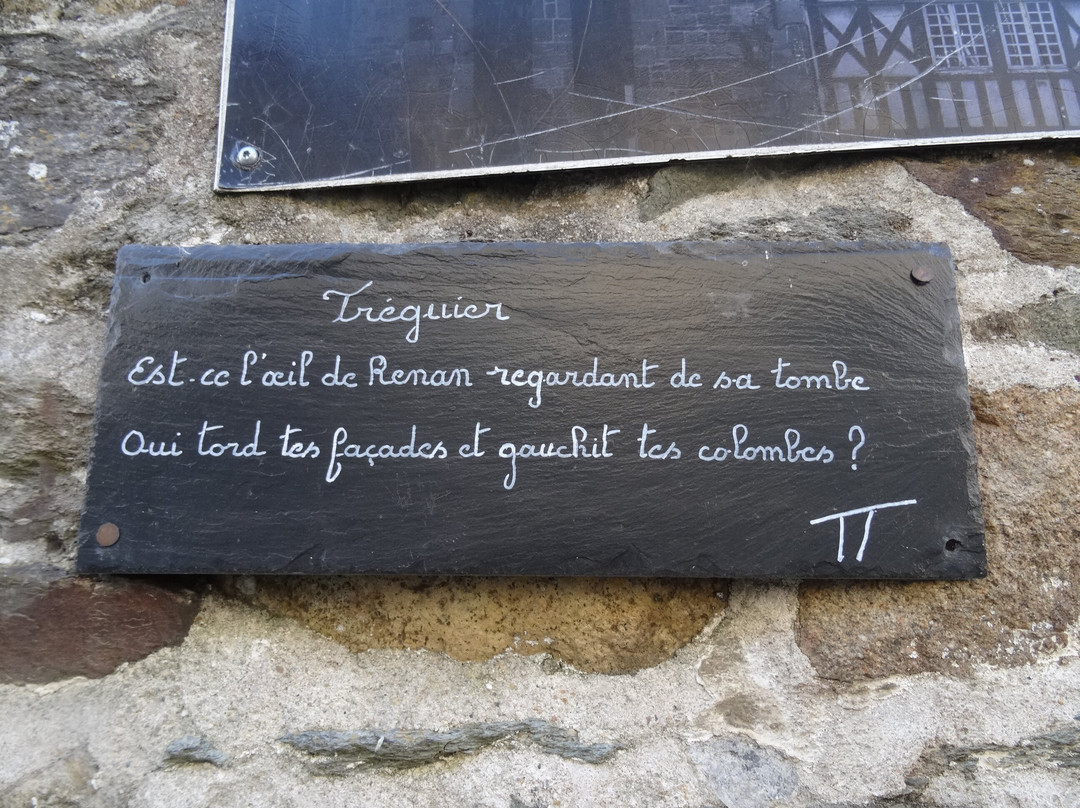 Tréguier
Est-ce l'œil de Renan regardant de sa tombe
Qui tord tes façades et gauchit tes colombes ?
TT